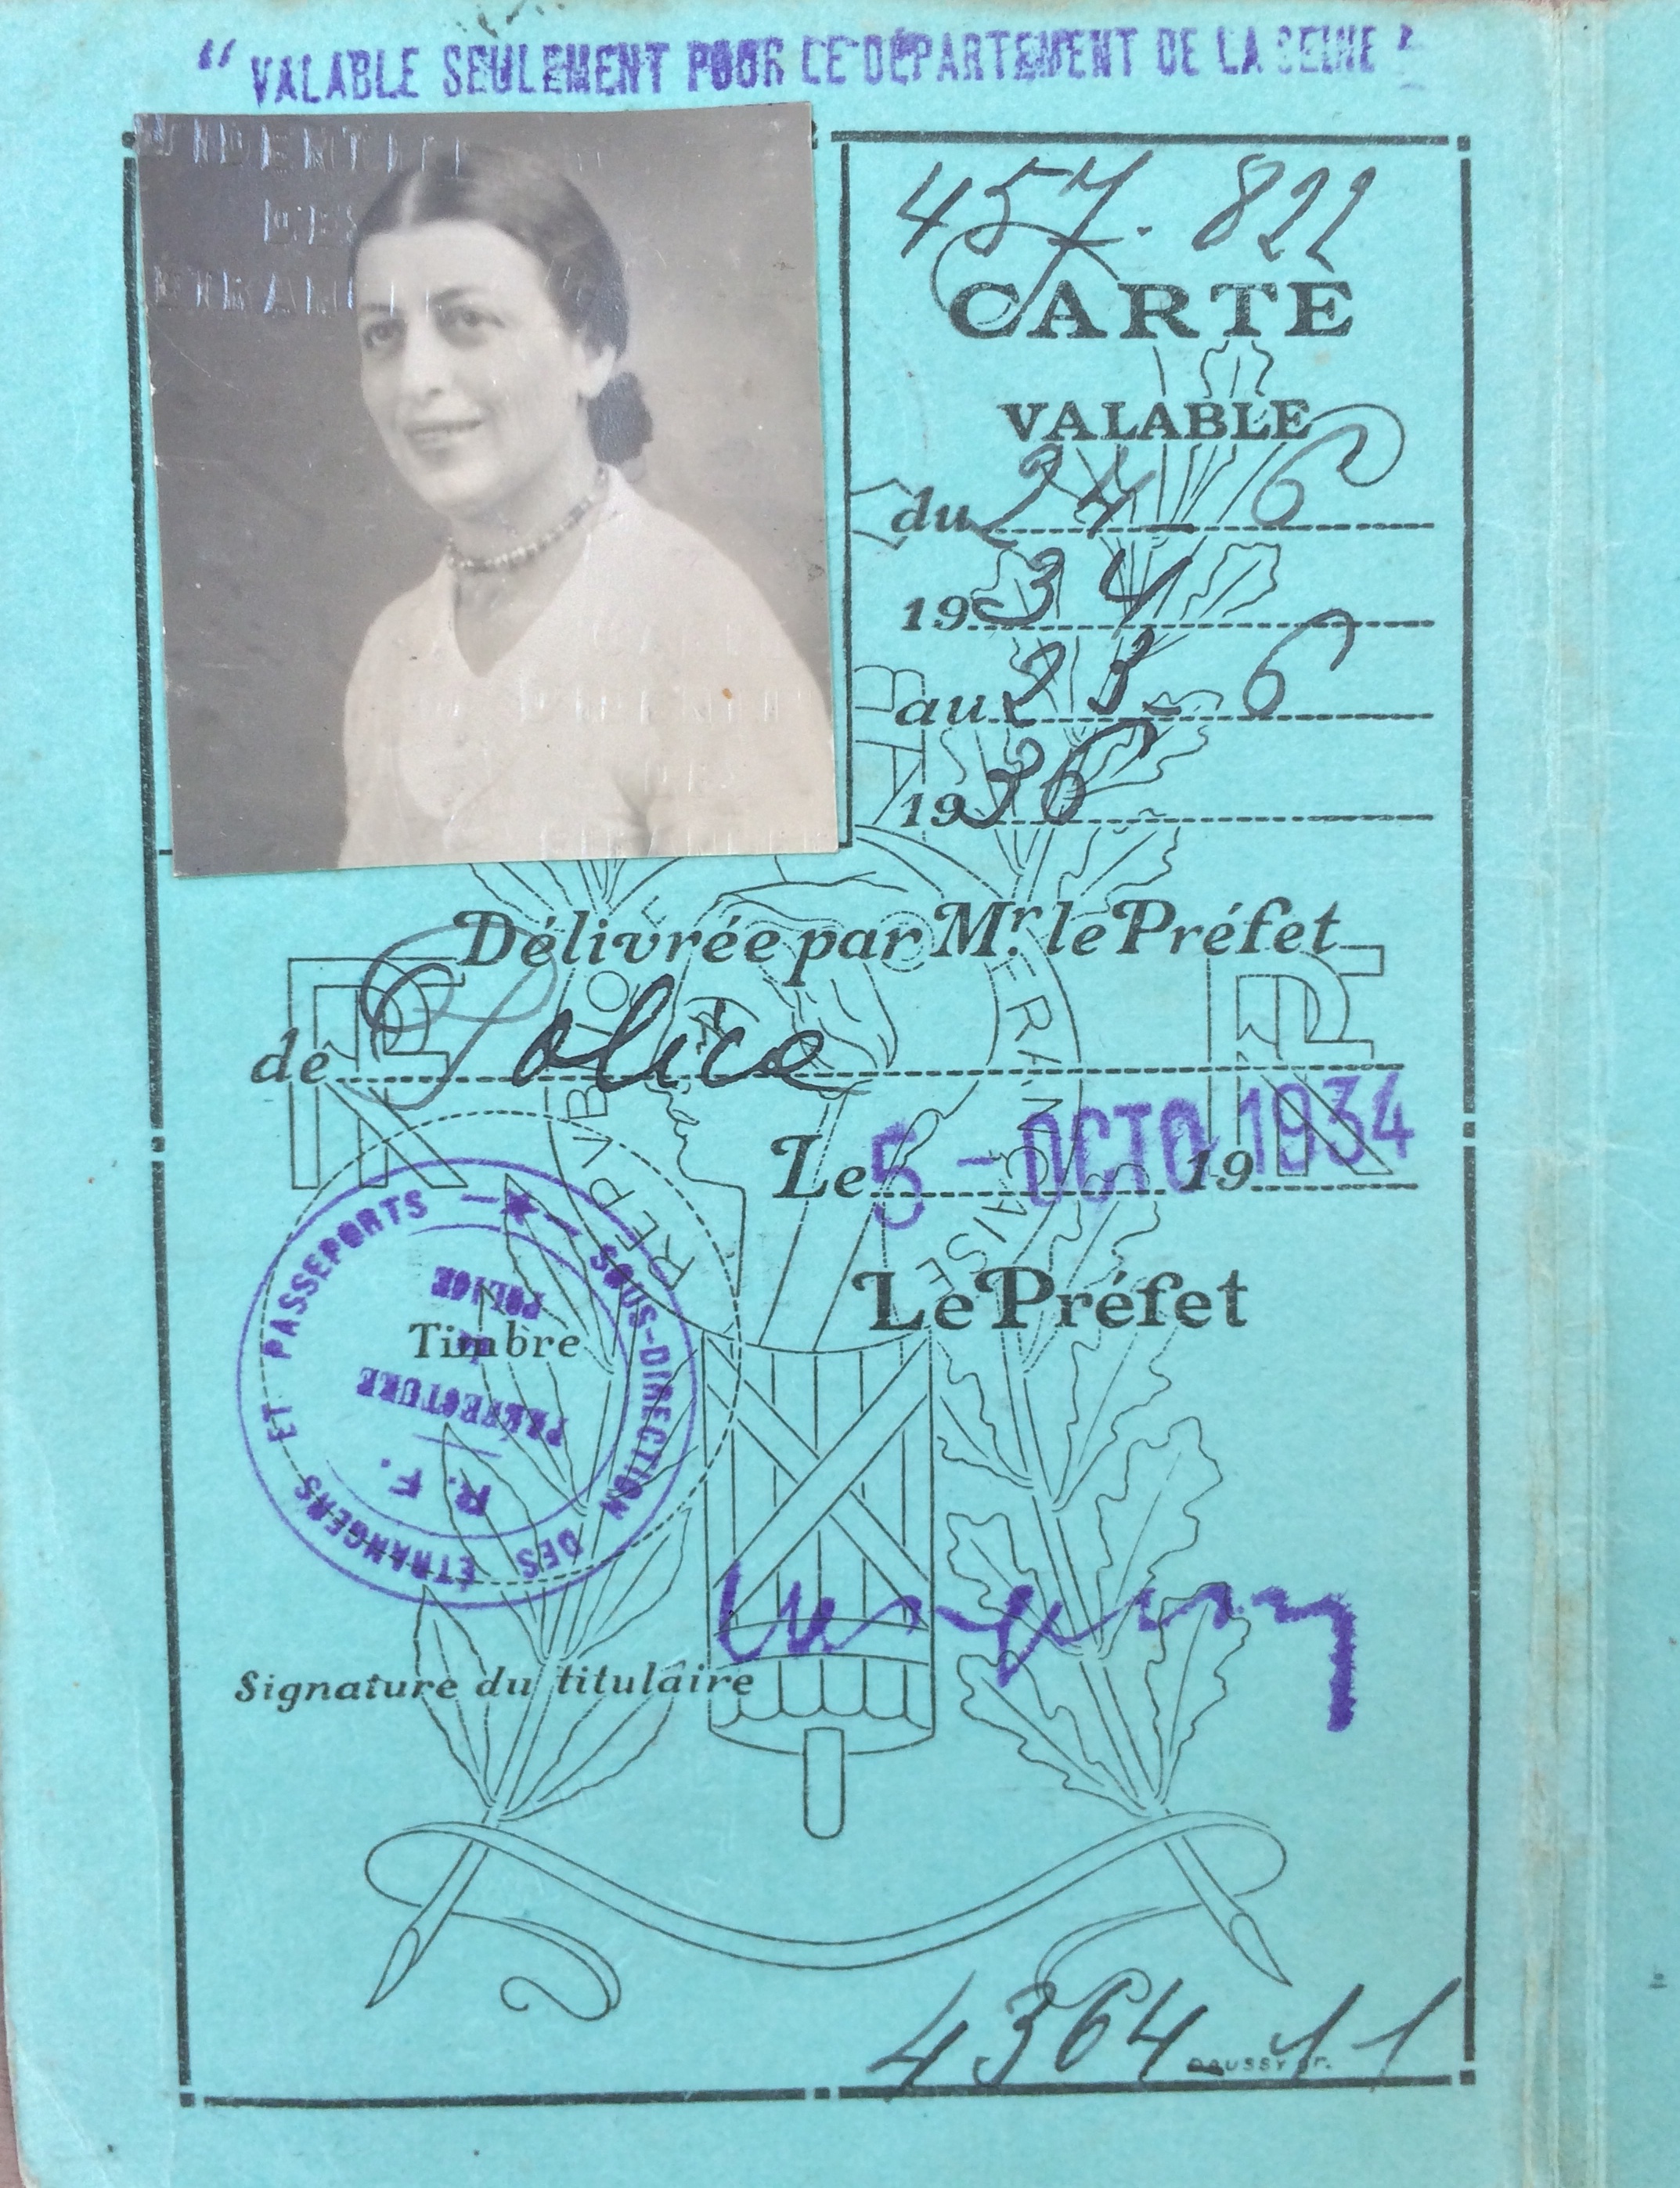 “ VALABLE SEULEMENT POUR LE DÉPARTEMENT DE LA SEINE ”
457.822
CARTE
VALABLE
du 24-6
1934
au 23-6
1936
Délivrée par Mr. le Préfet
de Police
Le 5 - OCTO 1934 19
Le Préfet
Timbre
SOUS-DIRECTION DES ÉTRANGERS ET PASSEPORTS
R. F.
PRÉFECTURE
POLICE
RF
RF
REPVBLIQVE FRANÇAISE
Signature du titulaire
4364 11